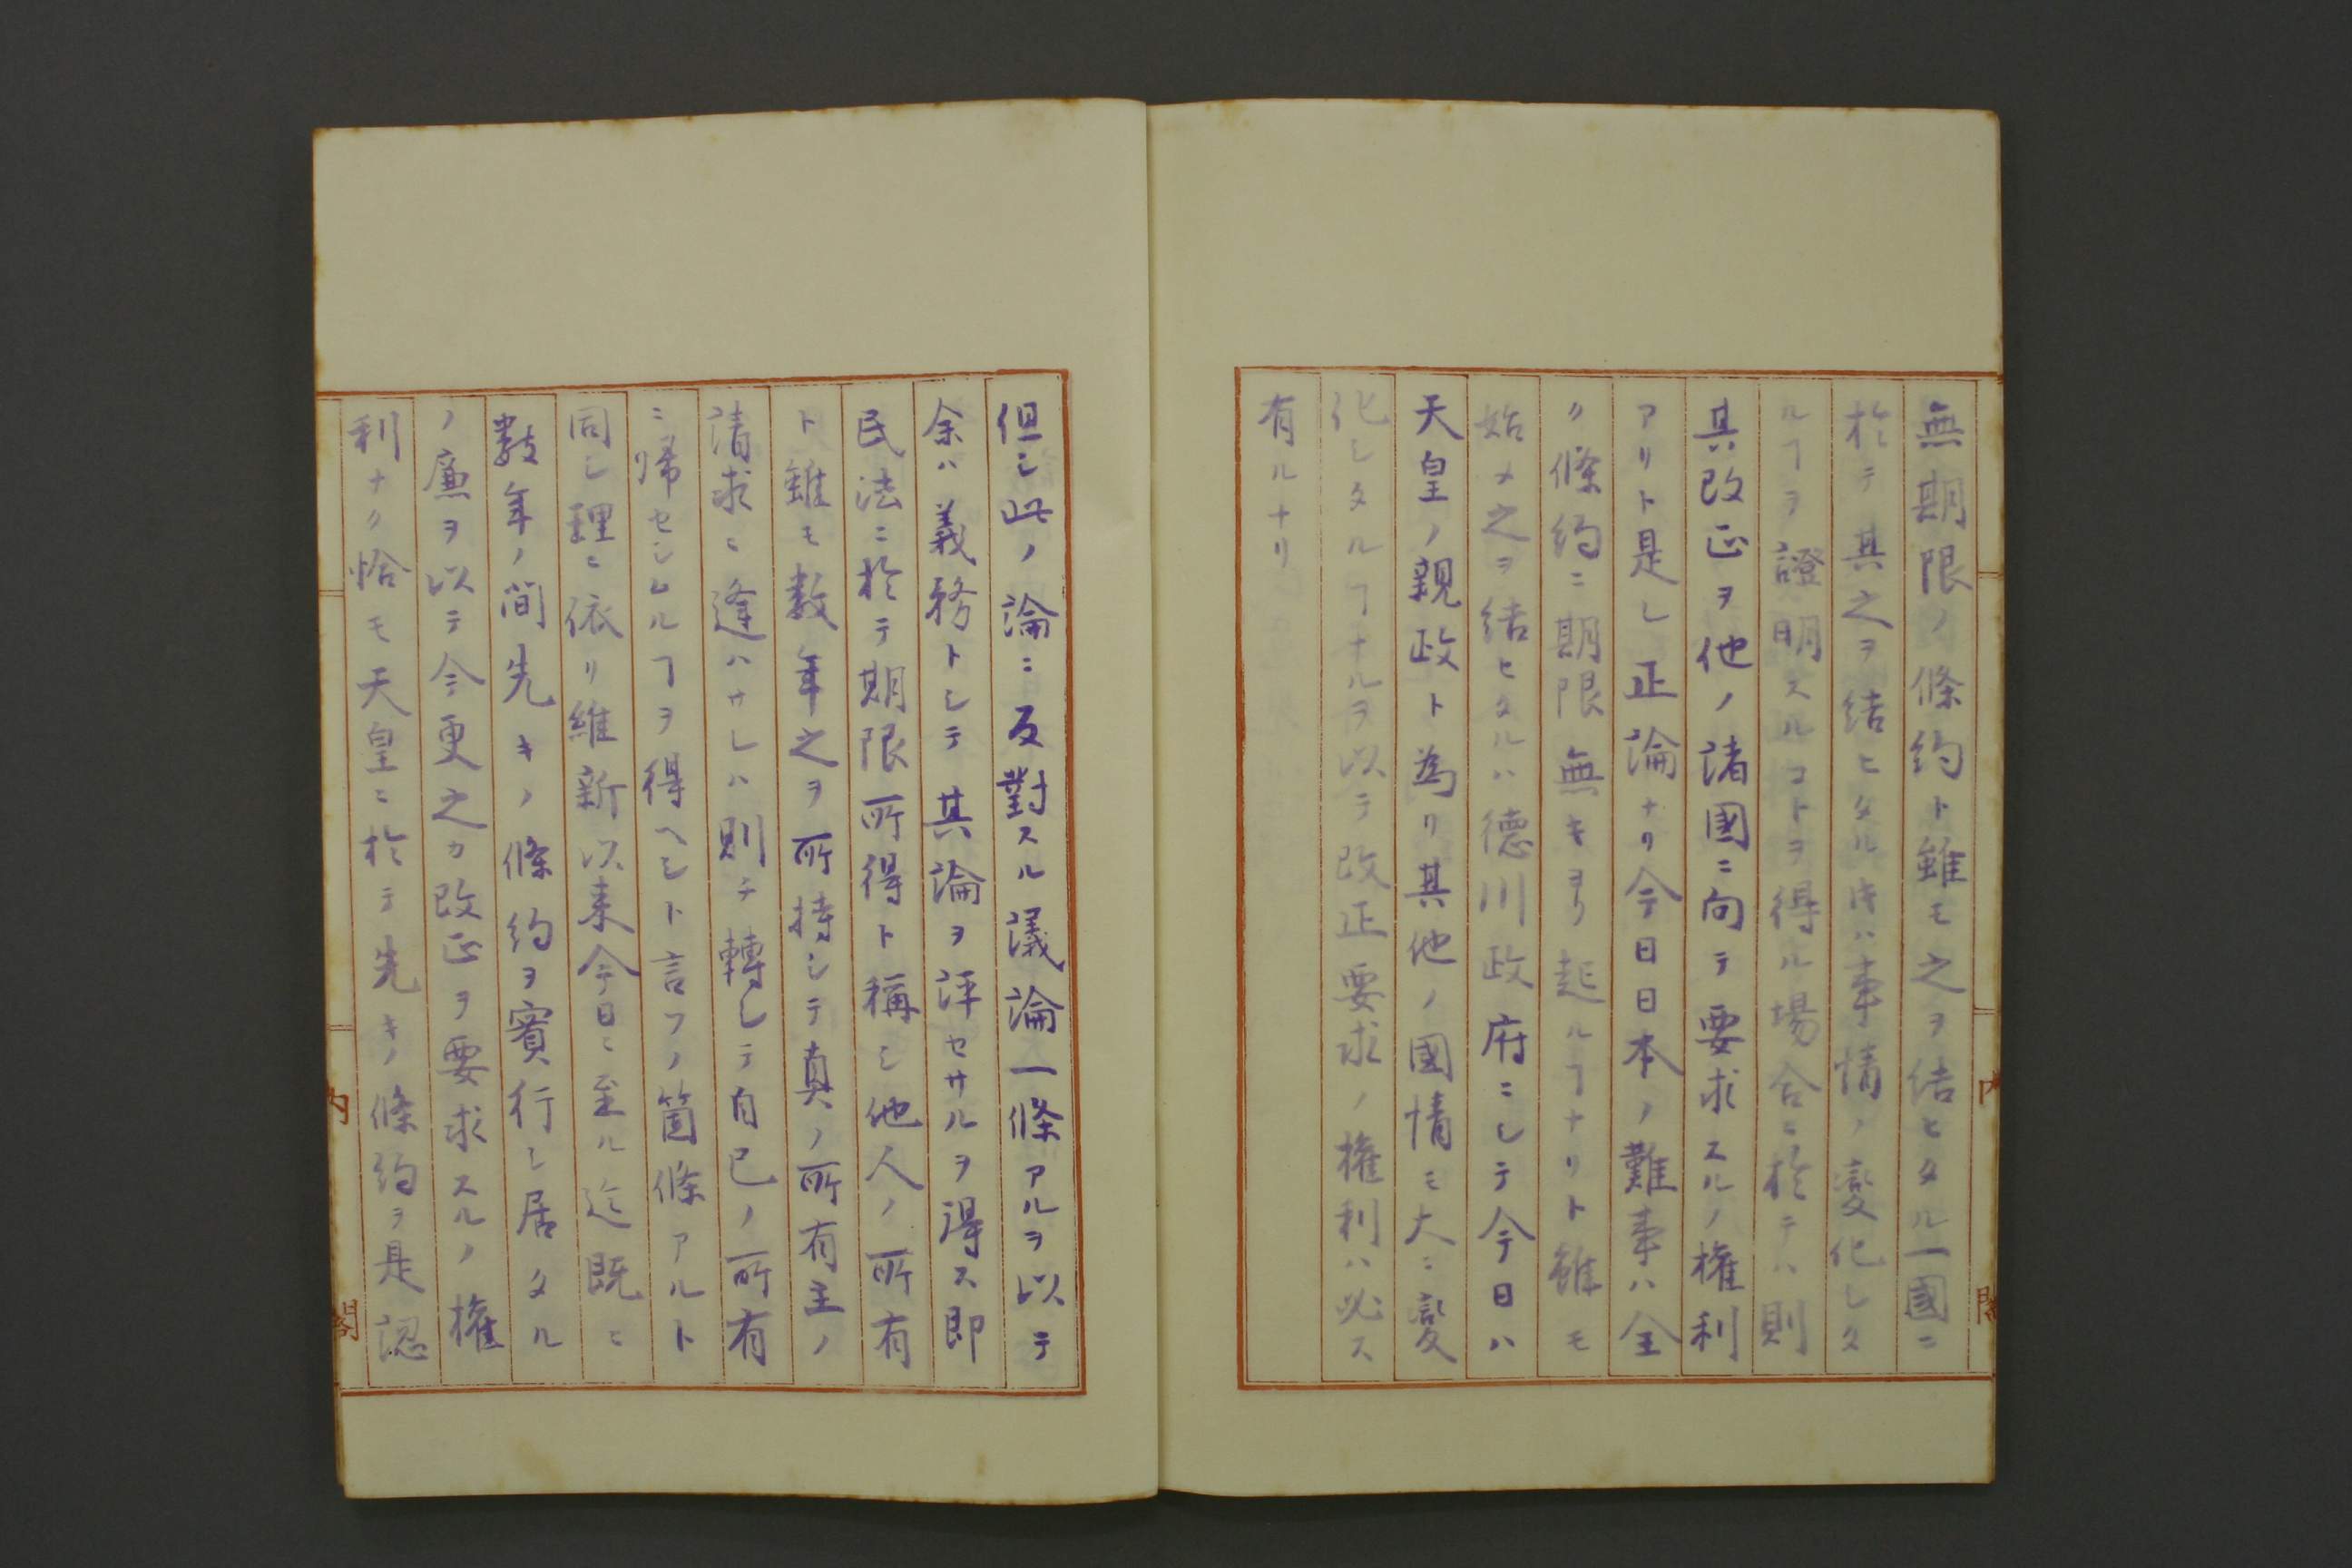 無期限ノ條約ト雖モ之ヲ結ヒタル一國ニ
於テ其之ヲ結ヒタル時ハ事情ノ變化シタ
ルヿヲ證明スルコトヲ得ル場合ニ於テハ則
其改正ヲ他ノ諸國ニ向テ要求スルノ權利
アリト是レ正論ナリ今日日本ノ難事ハ全
ク條約ニ期限無キヨリ起ルヿナリト雖モ
始メ之ヲ結ヒタルハ德川政府ニシテ今日ハ
天皇ノ親政ト為リ其他ノ國情モ大ニ變
化シタルヿナルヲ以テ改正要求ノ權利ハ必ス
有ルナリ
内閣
但シ此ノ論ニ反對スル議論一條アルヲ以テ
余ハ義務トシテ其論ヲ評セサルヲ得ス即
民法ニ於テ期限所得ト稱シ他人ノ所有
ト雖モ数年之ヲ所持シテ真ノ所有主ノ
請求ニ逢ハサレハ則チ轉シテ自己ノ所有
ニ帰セシムルヿヲ得ヘシト言フノ箇條アルト
同シ理ニ依リ維新以来今日ニ至ル迄既ニ
數年ノ間先キノ條約ヲ實行シ居タル
ノ廉ヲ以テ今更之カ改正ヲ要求スルノ權
利ナク恰モ天皇ニ於テ先キノ條約ヲ是認
内閣